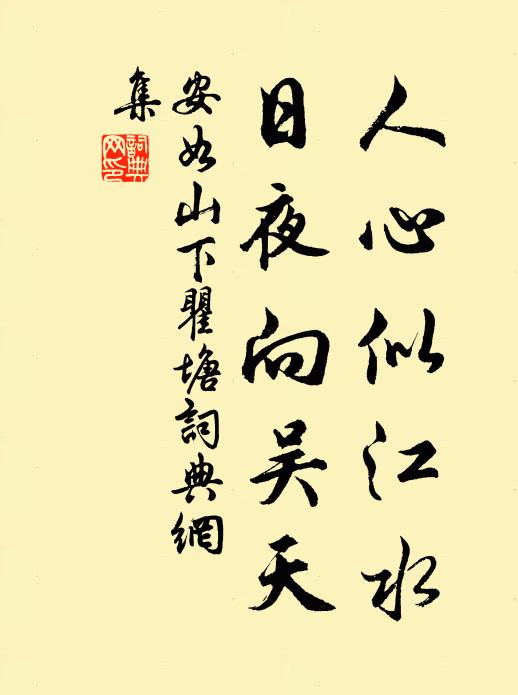 人心似江水
日夜向吴天
安如山下瞿塘詞典網
集
詞典
网印